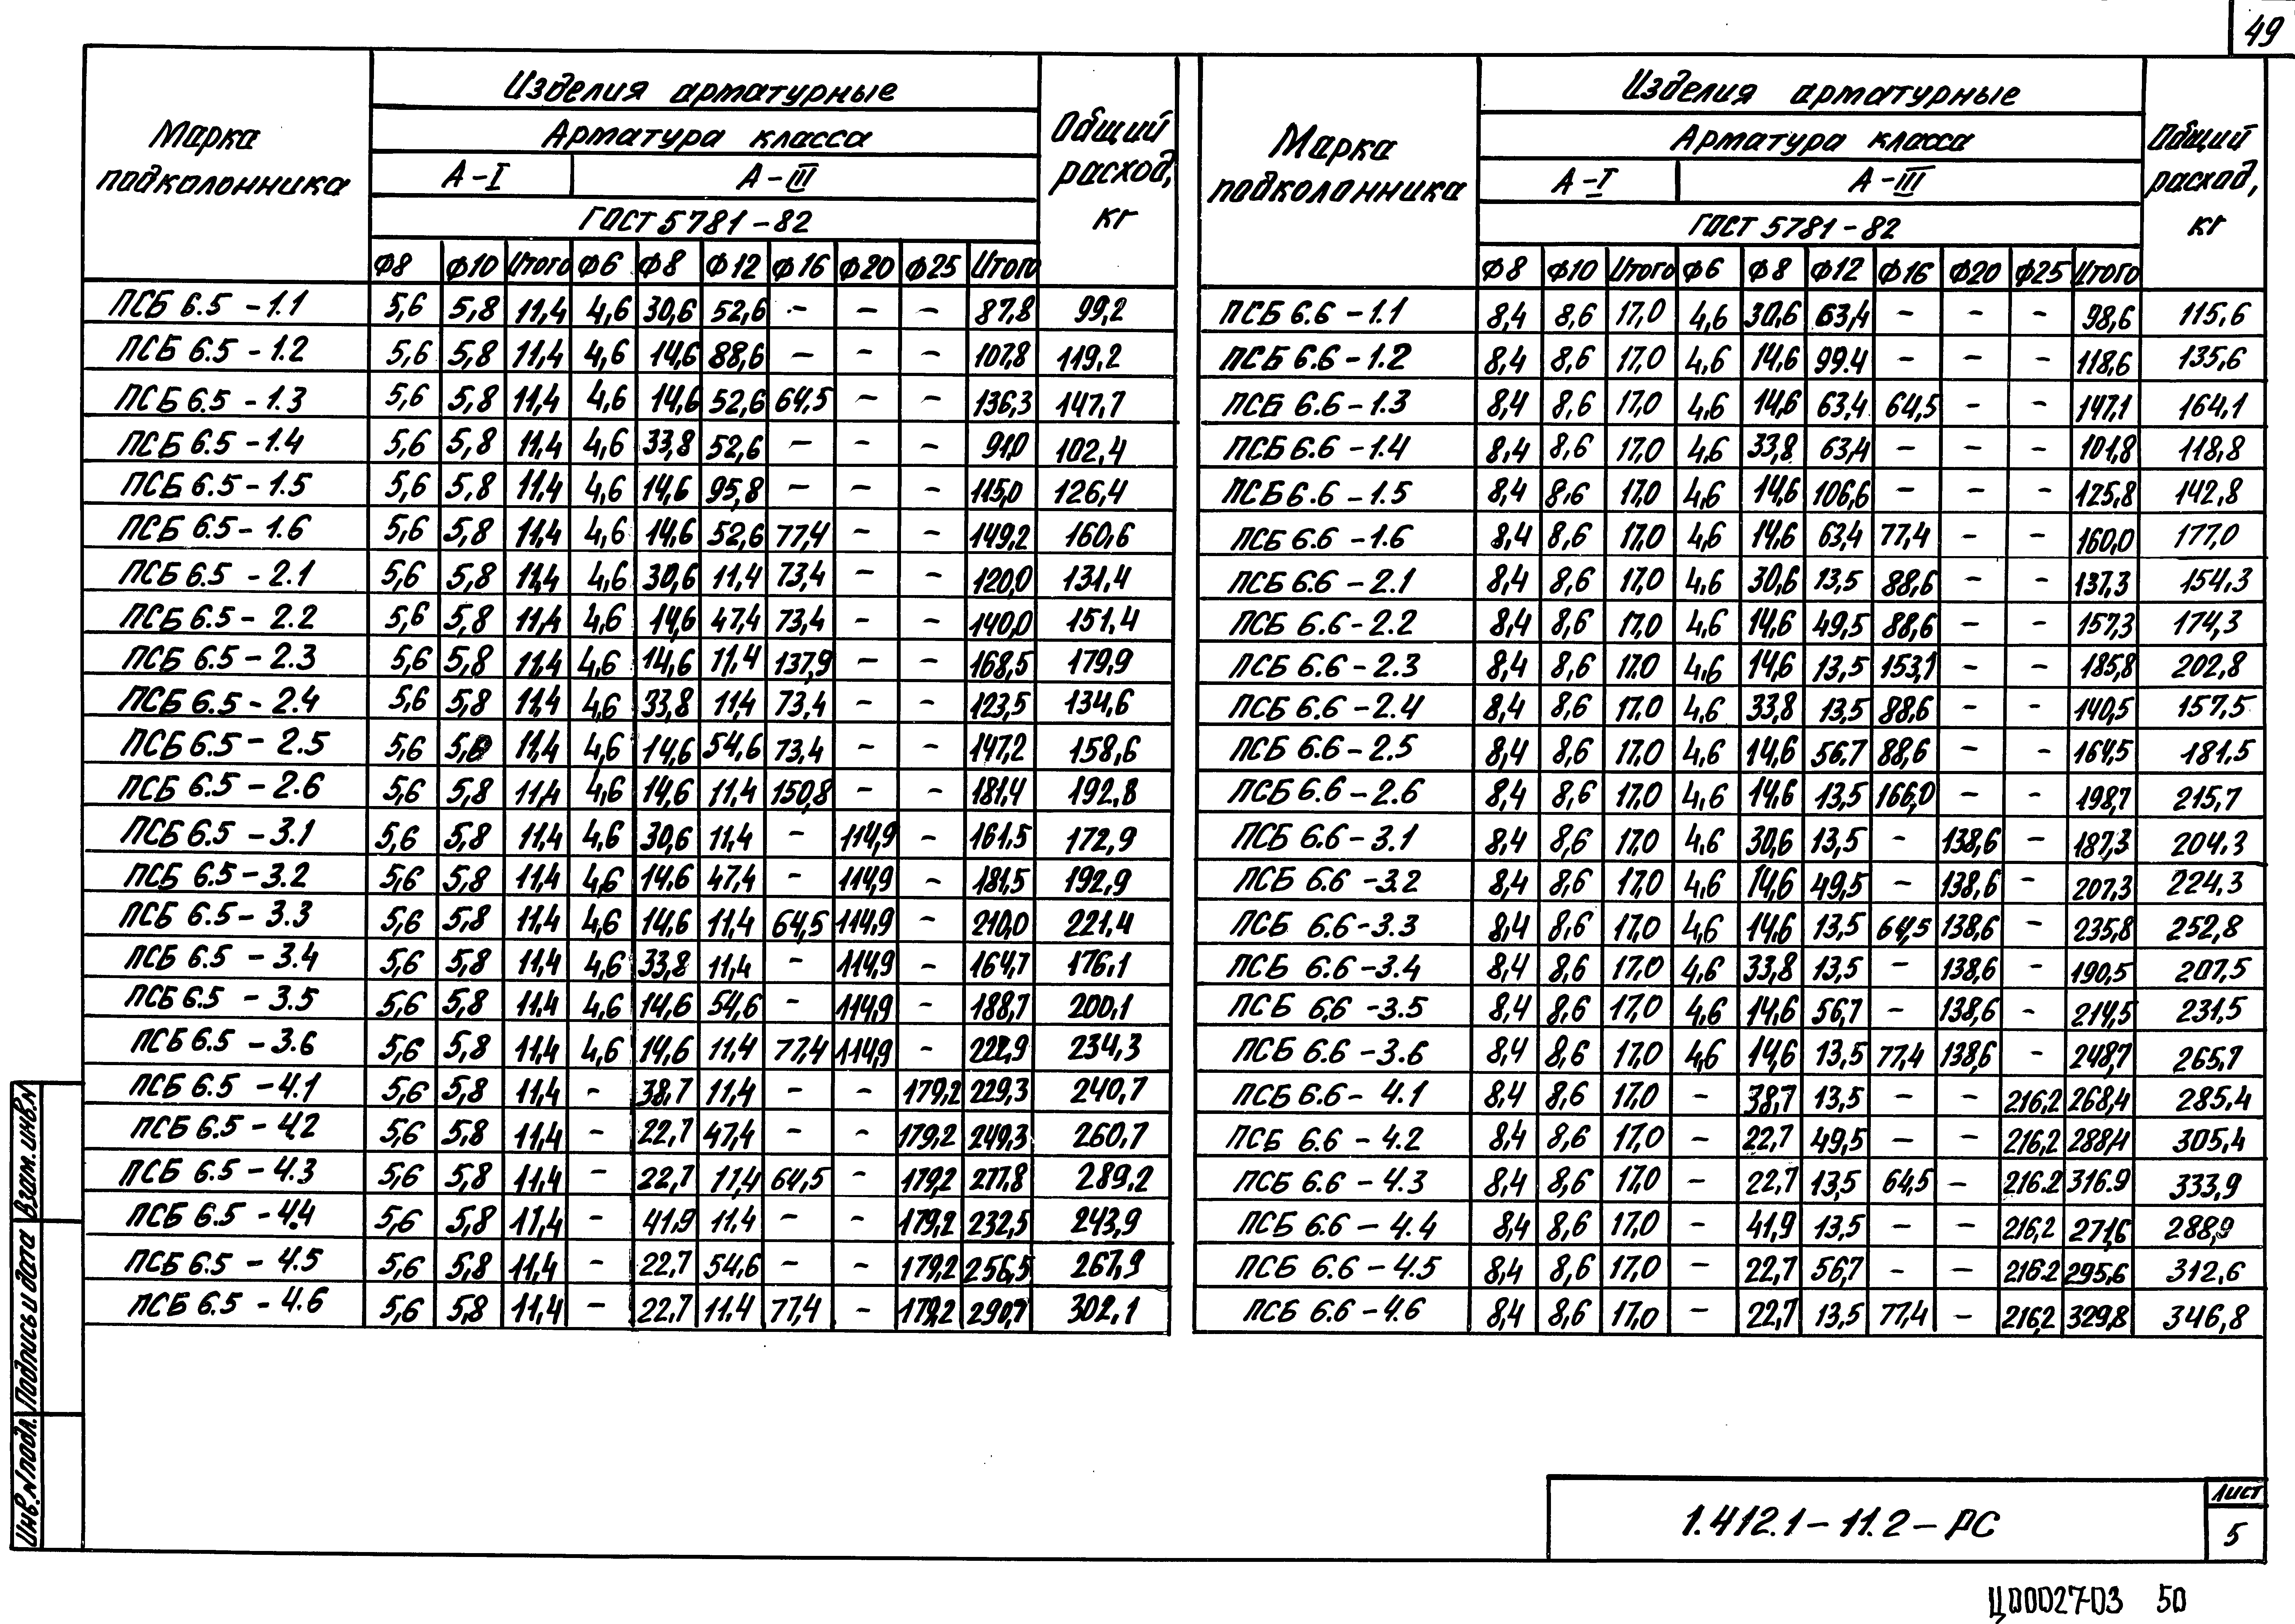 49
Марка подколонника | Изделия арматурные | Общий расход, кг
Арматура класса
А-I | А-III
ГОСТ 5781-82
Ф8 | Ф10 | Итого | Ф6 | Ф8 | Ф12 | Ф16 | Ф20 | Ф25 | Итого
ПСБ 6.5-1.1 | 5,6 | 5,8 | 11,4 | 4,6 | 30,6 | 52,6 | - | - | - | 87,8 | 99,2
ПСБ 6.5-1.2 | 5,6 | 5,8 | 11,4 | 4,6 | 14,6 | 88,6 | - | - | - | 107,8 | 119,2
ПСБ 6.5-1.3 | 5,6 | 5,8 | 11,4 | 4,6 | 14,6 | 52,6 | 64,5 | - | - | 136,3 | 147,7
ПСБ 6.5-1.4 | 5,6 | 5,8 | 11,4 | 4,6 | 33,8 | 52,6 | - | - | - | 91,0 | 102,4
ПСБ 6.5-1.5 | 5,6 | 5,8 | 11,4 | 4,6 | 14,6 | 95,8 | - | - | - | 115,0 | 126,4
ПСБ 6.5-1.6 | 5,6 | 5,8 | 11,4 | 4,6 | 14,6 | 52,6 | 77,4 | - | - | 149,2 | 160,6
ПСБ 6.5-2.1 | 5,6 | 5,8 | 11,4 | 4,6 | 30,6 | 11,4 | 73,4 | - | - | 120,0 | 131,4
ПСБ 6.5-2.2 | 5,6 | 5,8 | 11,4 | 4,6 | 14,6 | 47,4 | 73,4 | - | - | 140,0 | 151,4
ПСБ 6.5-2.3 | 5,6 | 5,8 | 11,4 | 4,6 | 14,6 | 11,4 | 137,9 | - | - | 168,5 | 179,9
ПСБ 6.5-2.4 | 5,6 | 5,8 | 11,4 | 4,6 | 33,8 | 11,4 | 73,4 | - | - | 123,5 | 134,6
ПСБ 6.5-2.5 | 5,6 | 5,8 | 11,4 | 4,6 | 14,6 | 54,6 | 73,4 | - | - | 147,2 | 158,6
ПСБ 6.5-2.6 | 5,6 | 5,8 | 11,4 | 4,6 | 14,6 | 11,4 | 150,8 | - | - | 181,4 | 192,8
ПСБ 6.5-3.1 | 5,6 | 5,8 | 11,4 | 4,6 | 30,6 | 11,4 | - | 114,9 | - | 161,5 | 172,9
ПСБ 6.5-3.2 | 5,6 | 5,8 | 11,4 | 4,6 | 14,6 | 47,4 | - | 114,9 | - | 181,5 | 192,9
ПСБ 6.5-3.3 | 5,6 | 5,8 | 11,4 | 4,6 | 14,6 | 11,4 | 64,5 | 114,9 | - | 210,0 | 221,4
ПСБ 6.5-3.4 | 5,6 | 5,8 | 11,4 | 4,6 | 33,8 | 11,4 | - | 114,9 | - | 164,7 | 176,1
ПСБ 6.5-3.5 | 5,6 | 5,8 | 11,4 | 4,6 | 14,6 | 54,6 | - | 114,9 | - | 188,7 | 200,1
ПСБ 6.5-3.6 | 5,6 | 5,8 | 11,4 | 4,6 | 14,6 | 11,4 | 77,4 | 114,9 | - | 222,9 | 234,3
ПСБ 6.5-4.1 | 5,6 | 5,8 | 11,4 | - | 38,7 | 11,4 | - | - | 179,2 | 229,3 | 240,7
ПСБ 6.5-4.2 | 5,6 | 5,8 | 11,4 | - | 22,7 | 47,4 | - | - | 179,2 | 249,3 | 260,7
ПСБ 6.5-4.3 | 5,6 | 5,8 | 11,4 | - | 22,7 | 11,4 | 64,5 | - | 179,2 | 277,8 | 289,2
ПСБ 6.5-4.4 | 5,6 | 5,8 | 11,4 | - | 41,9 | 11.4 | - | - | 179,2 | 232,5 | 243,9
ПСБ 6.5-4.5 | 5,6 | 5,8 | 11,4 | - | 22,7 | 54,6 | - | - | 179,2 | 256,5 | 267,9
ПСБ 6.5-4.6 | 5,6 | 5,8 | 11,4 | - | 22.7 | 11.4 | 77,4 | - | 179,2 | 290,7 | 302,1
Марка подколонника | Изделия арматурные | Общий расход, кг
Арматура класса
А-I | А-III
ГОСТ 5781-82
Ф8 | Ф10 | Итого | Ф6 | Ф8 | Ф12 | Ф16 | Ф20 | Ф25 | Итого
ПСБ 6.6-1.1 | 8,4 | 8,6 | 17,0 | 4,6 | 30,6 | 63,4 | - | - | - | 98,6 | 115,6
ПСБ 6.6-1.2 | 8,4 | 8,6 | 17,0 | 4,6 | 14,6 | 99.4 | - | - | - | 118,6 | 135,6
ПСБ 6.6-1.3 | 8,4 | 8,6 | 17,0 | 4,6 | 14,6 | 63.4 | 64,5 | - | - | 147,1 | 164,1
ПСБ 6.6-1.4 | 8,4 | 8,6 | 17,0 | 4,6 | 33,8 | 63,4 | - | - | - | 101,8 | 118,8
ПСБ 6.6-1.5 | 8,4 | 8,6 | 17,0 | 4,6 | 14,6 | 106,6 | - | - | - | 125,8 | 142,8
ПСБ 6.6-1.6 | 8,4 | 8,6 | 17,0 | 4,6 | 14,6 | 63,4 | 77,4 | - | - | 160,0 | 177,0
ПСБ 6.6-2.1 | 8,4 | 8,6 | 17,0 | 4,6 | 30,6 | 13,5 | 88,6 | - | - | 137,3 | 154,3
ПСБ 6.6-2.2 | 8,4 | 8,6 | 17,0 | 4,6 | 14,6 | 49,5 | 88,6 | - | - | 157,3 | 174,3
ПСБ 6.6-2.3 | 8,4 | 8,6 | 17.0 | 4,6 | 14,6 | 13,5 | 153,1 | - | - | 185,8 | 202,8
ПСБ 6.6-2.4 | 8,4 | 8,6 | 17.0 | 4,6 | 33,8 | 13,5 | 88,6 | - | - | 140,5 | 157,5
ПСБ 6.6-2.5 | 8,4 | 8,6 | 17,0 | 4,6 | 14,6 | 56.7 | 88,6 | - | - | 164,5 | 181,5
ПСБ 6.6-2.6 | 8,4 | 8,6 | 17,0 | 4,6 | 14,6 | 13,5 | 166,0 | - | - | 198,7 | 215,7
ПСБ 6.6-3.1 | 8,4 | 8,6 | 17,0 | 4,6 | 30,6 | 13,5 | - | 138,6 | - | 187,3 | 204,3
ПСБ 6.6-3.2 | 8,4 | 8,6 | 17,0 | 4,6 | 14,6 | 49,5 | - | 138,6 | - | 207,3 | 224,3
ПСБ 6.6-3.3 | 8,4 | 8,6 | 17,0 | 4,6 | 14,6 | 13,5 | 64,5 | 138,6 | - | 235,8 | 252,8
ПСБ 6.6-3.4 | 8,4 | 8,6 | 17,0 | 4,6 | 33,8 | 13,5 | - | 138,6 | - | 190,5 | 207,5
ПСБ 6.6-3.5 | 8,4 | 8,6 | 17,0 | 4,6 | 14,6 | 56,7 | - | 138,6 | - | 214,5 | 231,5
ПСБ 6.6-3.6 | 8,4 | 8,6 | 17,0 | 4,6 | 14,6 | 13,5 | 77.4 | 138,6 | - | 248,7 | 265,7
ПСБ 6.6-4.1 | 8,4 | 8,6 | 17,0 | - | 38,7 | 13,5 | - | - | 216,2 | 268,4 | 285,4
ПСБ 6.6-4.2 | 8,4 | 8,6 | 17,0 | - | 22,7 | 49,5 | - | - | 216,2 | 288,4 | 305,4
ПСБ 6.6-4.3 | 8,4 | 8,6 | 17,0 | - | 22,7 | 13,5 | 64,5 | - | 216.2 | 316.9 | 333,9
ПСБ 6.6-4.4 | 8,4 | 8,6 | 17,0 | - | 41,9 | 13,5 | - | - | 216,2 | 271,6 | 288,9
ПСБ 6.6-4.5 | 8,4 | 8,6 | 17,0 | - | 22,7 | 56,7 | - | - | 216.2 | 295,6 | 312,6
ПСБ 6.6-4.6 | 8,4 | 8,6 | 17,0 | - | 22,7 | 13,5 | 77,4 | - | 216,2 | 329,8 | 346,8
Взам.инв.N
Подпись и дата
Инв.N подл.
1.412.1-11.2-РС
Лист
5
Ц00027-03 50